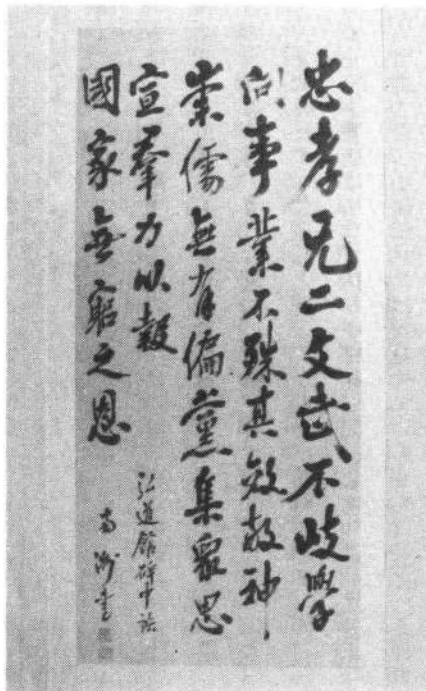 忠孝无二文武不歧學
問事業不殊其效敬神
崇儒無有偏黨集衆思
宣羣力以報
國家無窮之恩
弘道館碑中語